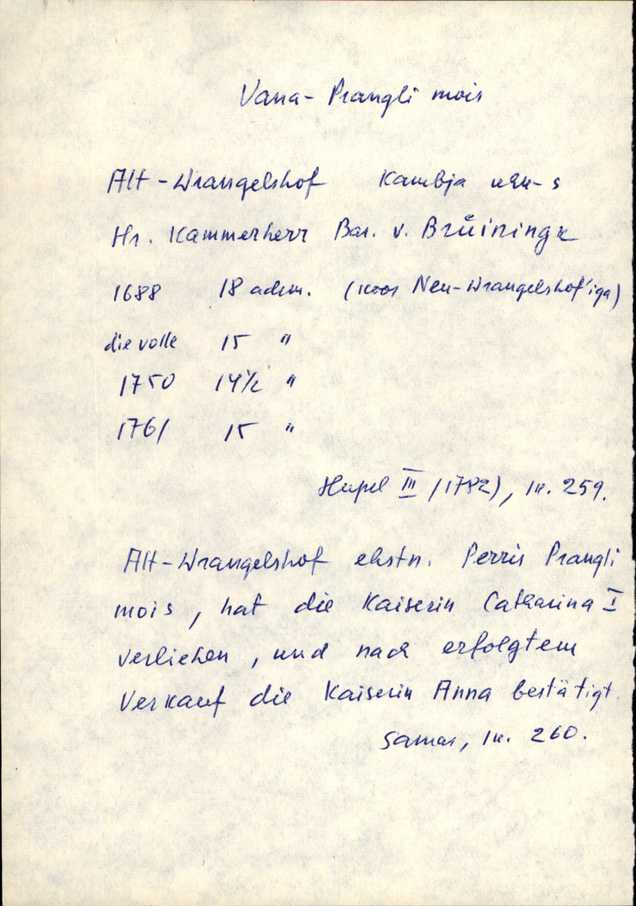 Vana-Prangli mois
Alt-Wrangelshof Kambja khk-s
Hr. Kammerherr Bar. v. Brüiningk
1688 18 adrm. (koos Neu-Wrangelshof'iga)
die volle 15 "
1750 14½ "
1761 15 "
Hupel III (1782), lk. 259.
Alt-Wrangelshof ehstn. Perris Prangli
mois, hat die Kaiserin Catharina I
verliehen, und nach erfolgtem
Verkauf die Kaiserin Anna bestätigt.
Samas, lk. 260.